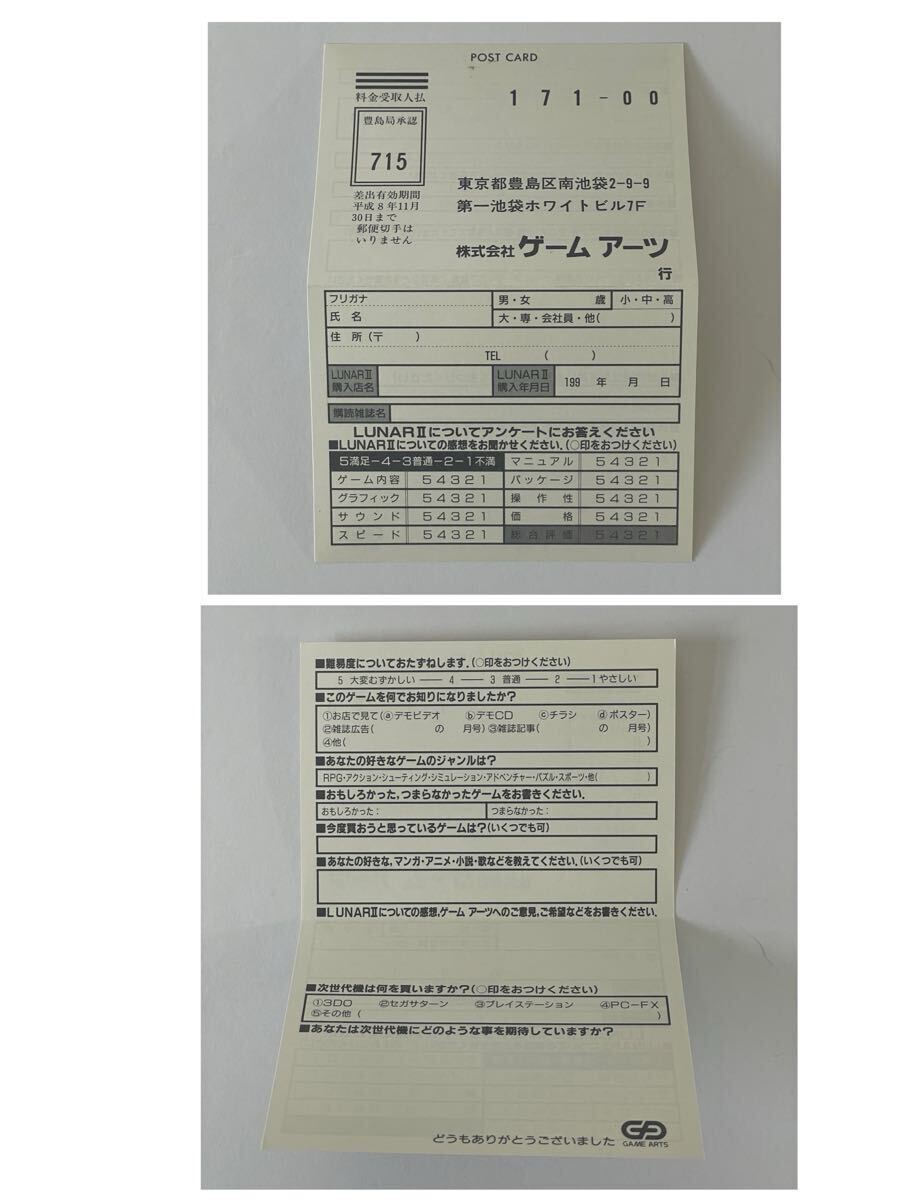 POST CARD
料金受取人払
豊島局承認
715
差出有効期間
平成8年11月
30日まで
郵便切手は
いりません
171-00
東京都豊島区南池袋2-9-9
第一池袋ホワイトビル7F
株式会社 ゲーム アーツ
行
フリガナ
氏 名
男・女 歳 小・中・高
大・専・会社員・他( )
住 所(〒 )
TEL ( )
LUNARⅡ
購入店名
LUNARⅡ
購入年月日
199 年 月 日
購読雑誌名
LUNARⅡについてアンケートにお答えください
■LUNARⅡについての感想をお聞かせください.(○印をおつけください)
5満足-4-3普通-2-1不満 マニュアル 54321
ゲーム内容 54321 パッケージ 54321
グラフィック 54321 操作性 54321
サウンド 54321 価格 54321
スピード 54321 総合評価 54321
■難易度についておたずねします.(○印をおつけください)
5 大変むずかしい ― 4 ― 3 普通 ― 2 ― 1やさしい
■このゲームを何でお知りになりましたか?
①お店で見て(ⓐデモビデオ ⓑデモCD ⓒチラシ ⓓポスター)
②雑誌広告( の 月号)③雑誌記事( の 月号)
④他( )
■あなたの好きなゲームのジャンルは?
RPG・アクション・シューティング・シミュレーション・アドベンチャー・パズル・スポーツ・他( )
■おもしろかった,つまらなかったゲームをお書きください.
おもしろかった: つまらなかった:
■今度買おうと思っているゲームは?(いくつでも可)
■あなたの好きな,マンガ・アニメ・小説・歌などを教えてください.(いくつでも可)
■LUNARⅡについての感想,ゲーム アーツへのご意見,ご希望などをお書きください.
■次世代機は何を買いますか?(○印をおつけください)
①3DO ②セガサターン ③プレイステーション ④PC-FX
⑤その他( )
■あなたは次世代機にどのような事を期待していますか?
どうもありがとうございました
GAME ARTS